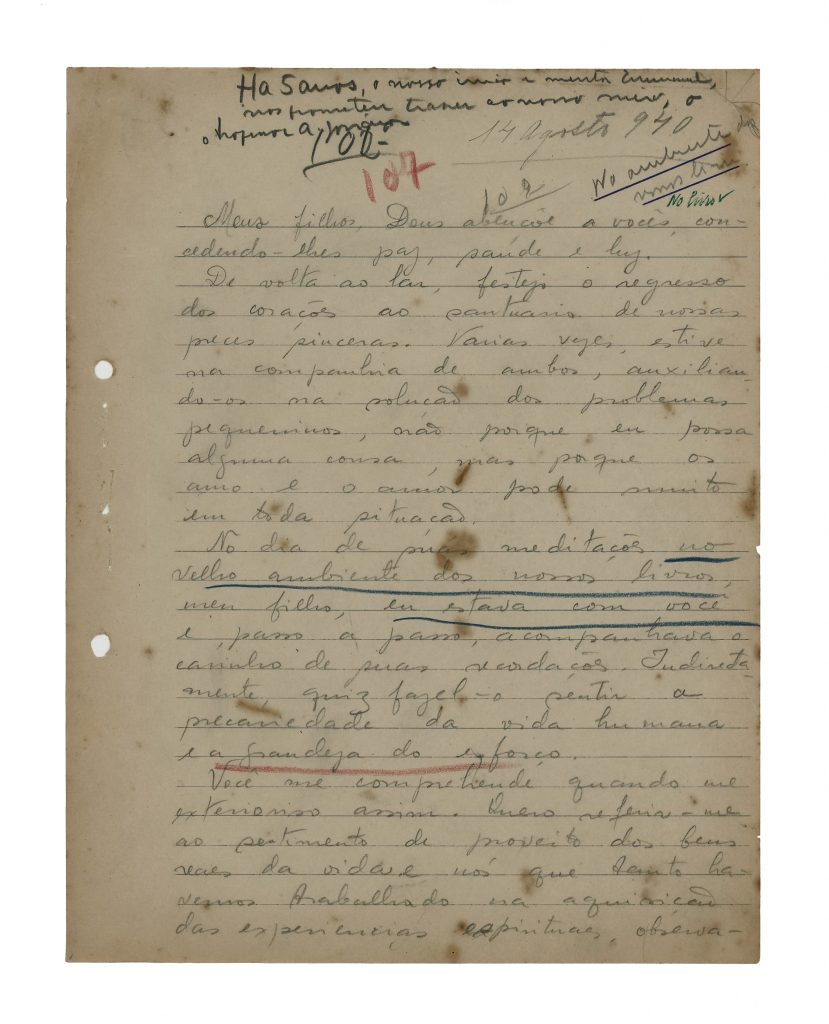 Ha 5 anos, o nosso irmão e mentor Emmanuel,
nos prometeu trazer ao nosso meio, o
o professor A.
102-
14 Agosto 940
107
102
No ambiente
No livro
Meus filhos, Deus abençõe a vocês, con-
cedendo-lhes paz, saúde e luz.
De volta ao lar, festejo o regresso
dos corações ao santuario de nossas
preces sinceras. Varias vezes, estive
na companhia de ambos, auxilian-
do-os na solução dos problemas
pequeninos, não porque eu possa
alguma cousa, mas porque os
amo e o amor pode muito
em toda situação.
No dia de suas meditações no
velho ambiente dos nossos livros,
meu filho, eu estava com você
e, passo a passo, acompanhava o
caminho de suas recordações. Indirecta-
mente, quiz fazel-o sentir a
precariedade da vida humana
e a grandeza do esforço.
Você me comprehende quando me
exteriorizo assim. Quero referir-me
ao sentimento de proveito dos bens
reaes da vida e nós que tanto ha-
vemos trabalhado na aquisição
das experiencias espirituaes, observa-